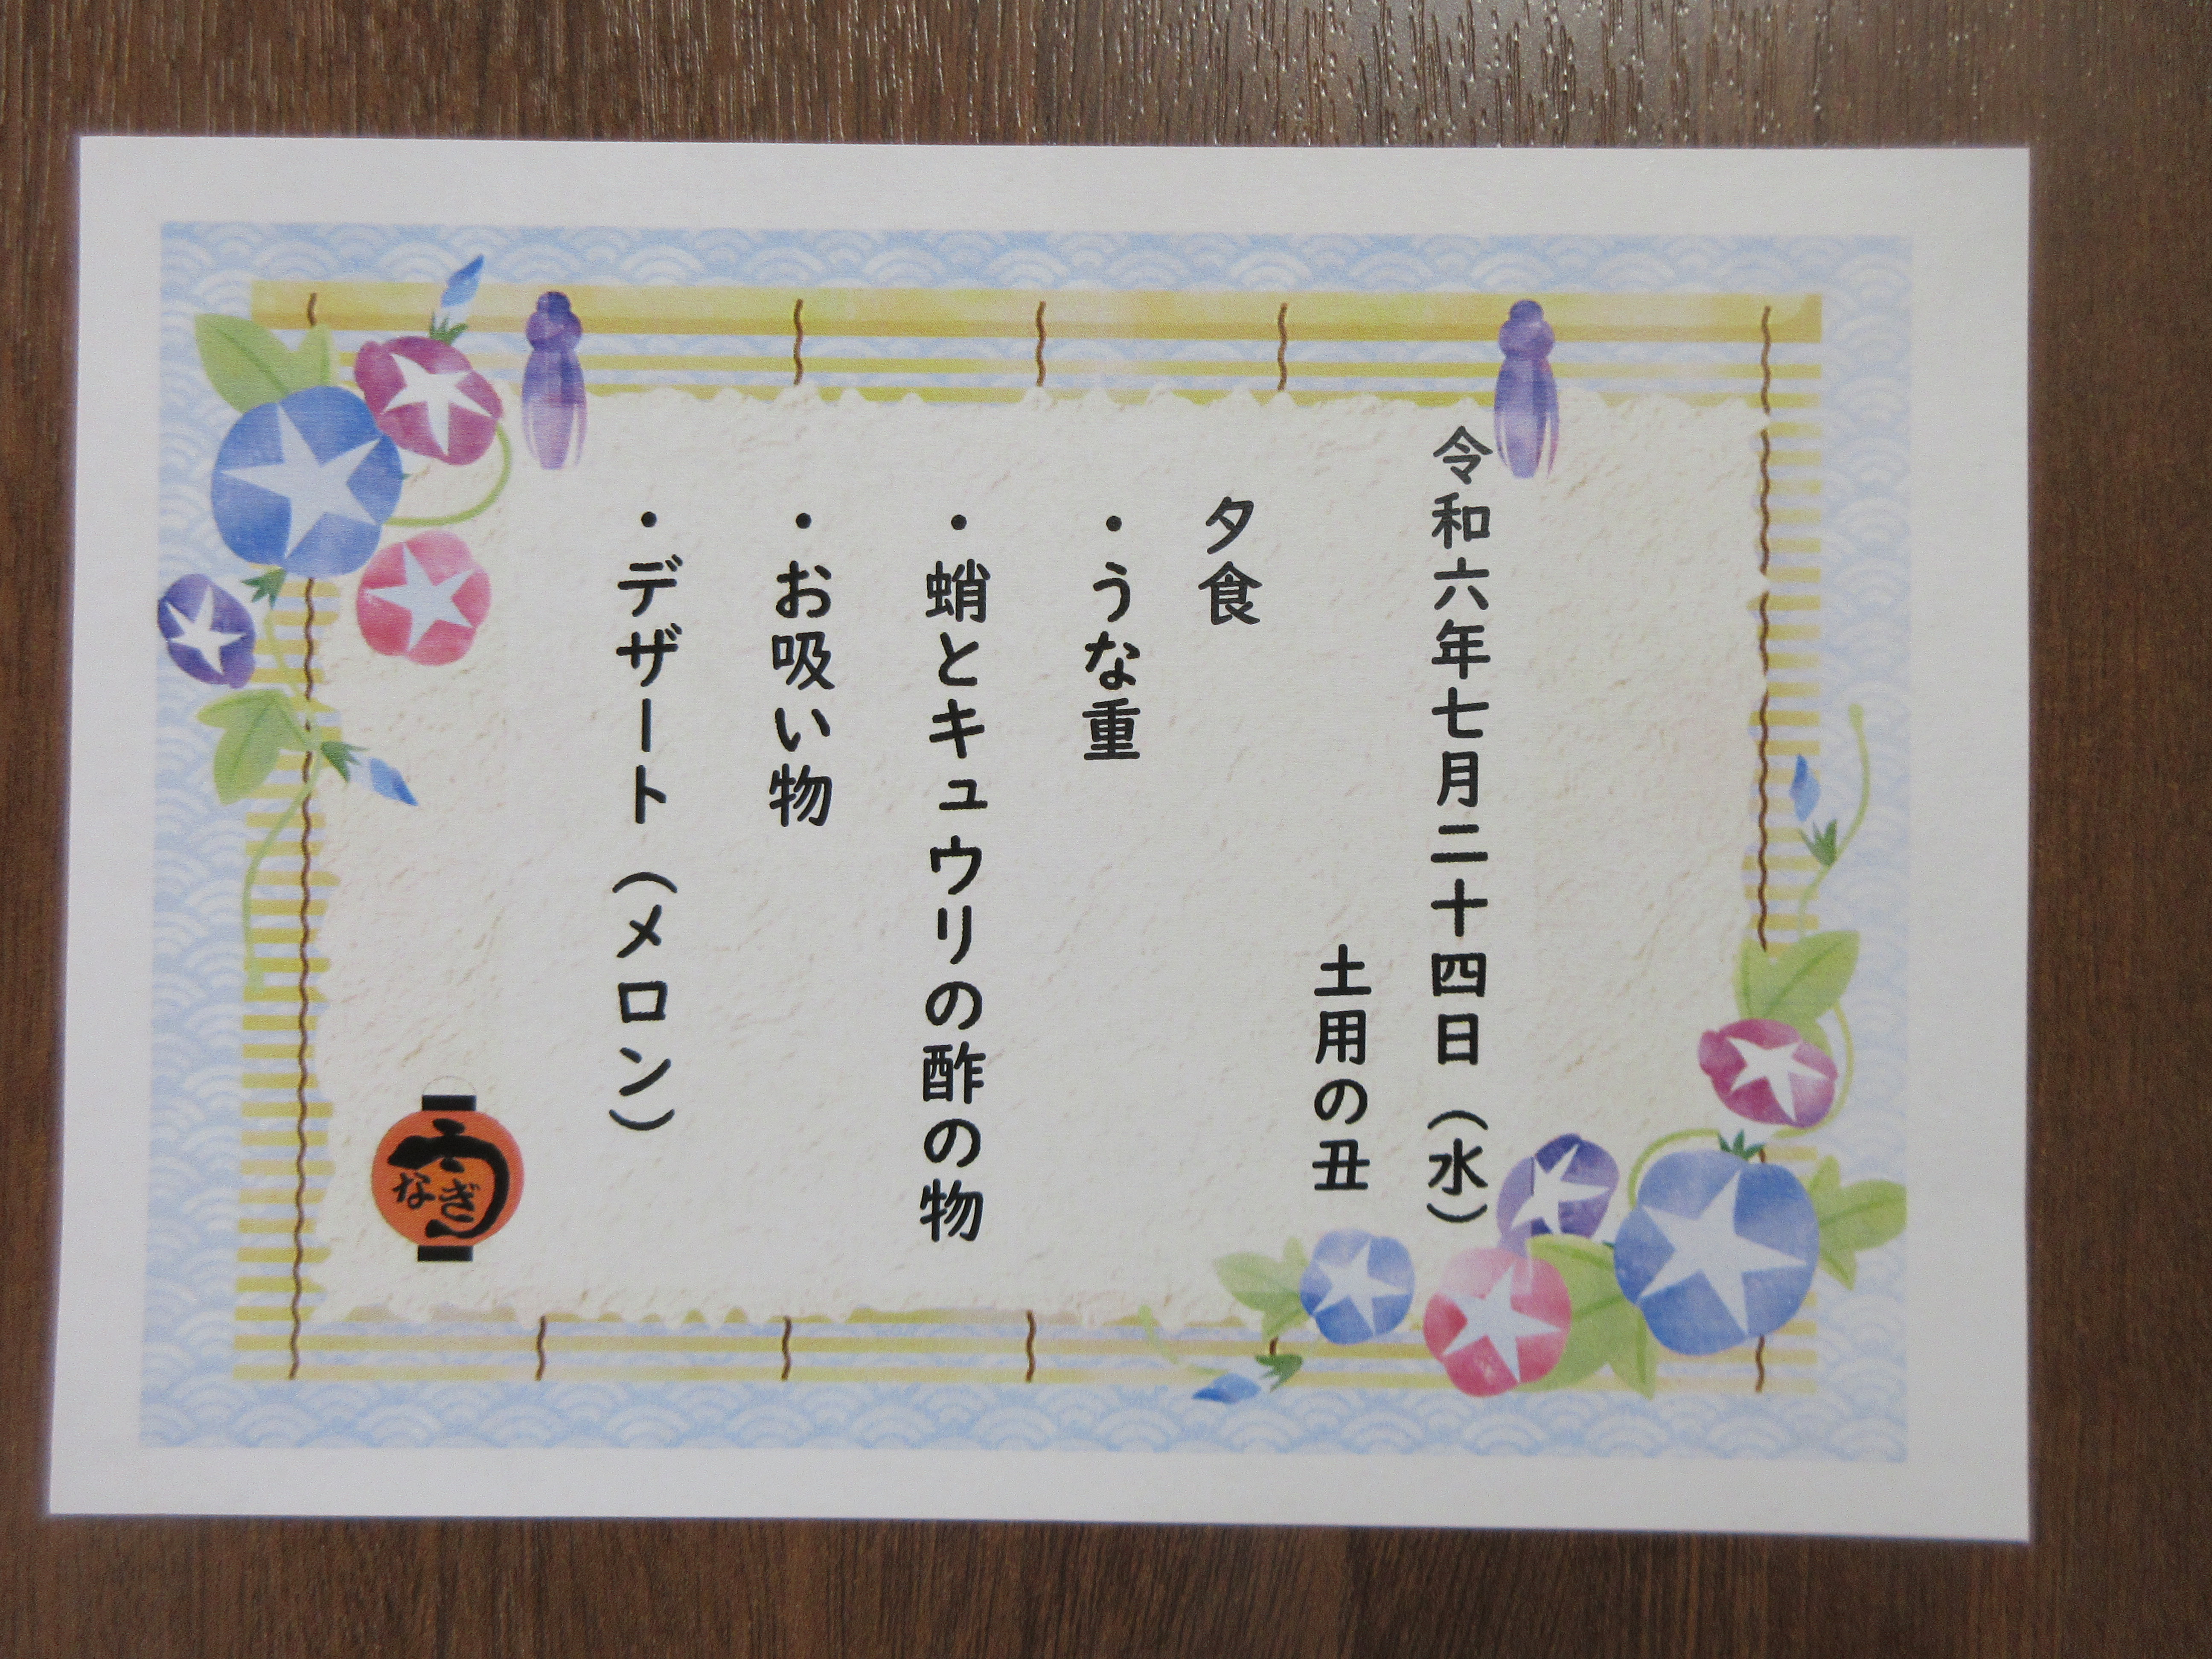 令和六年七月二十四日（水）
土用の丑
夕食
・うな重
・蛸とキュウリの酢の物
・お吸い物
・デザート（メロン）
うなぎ